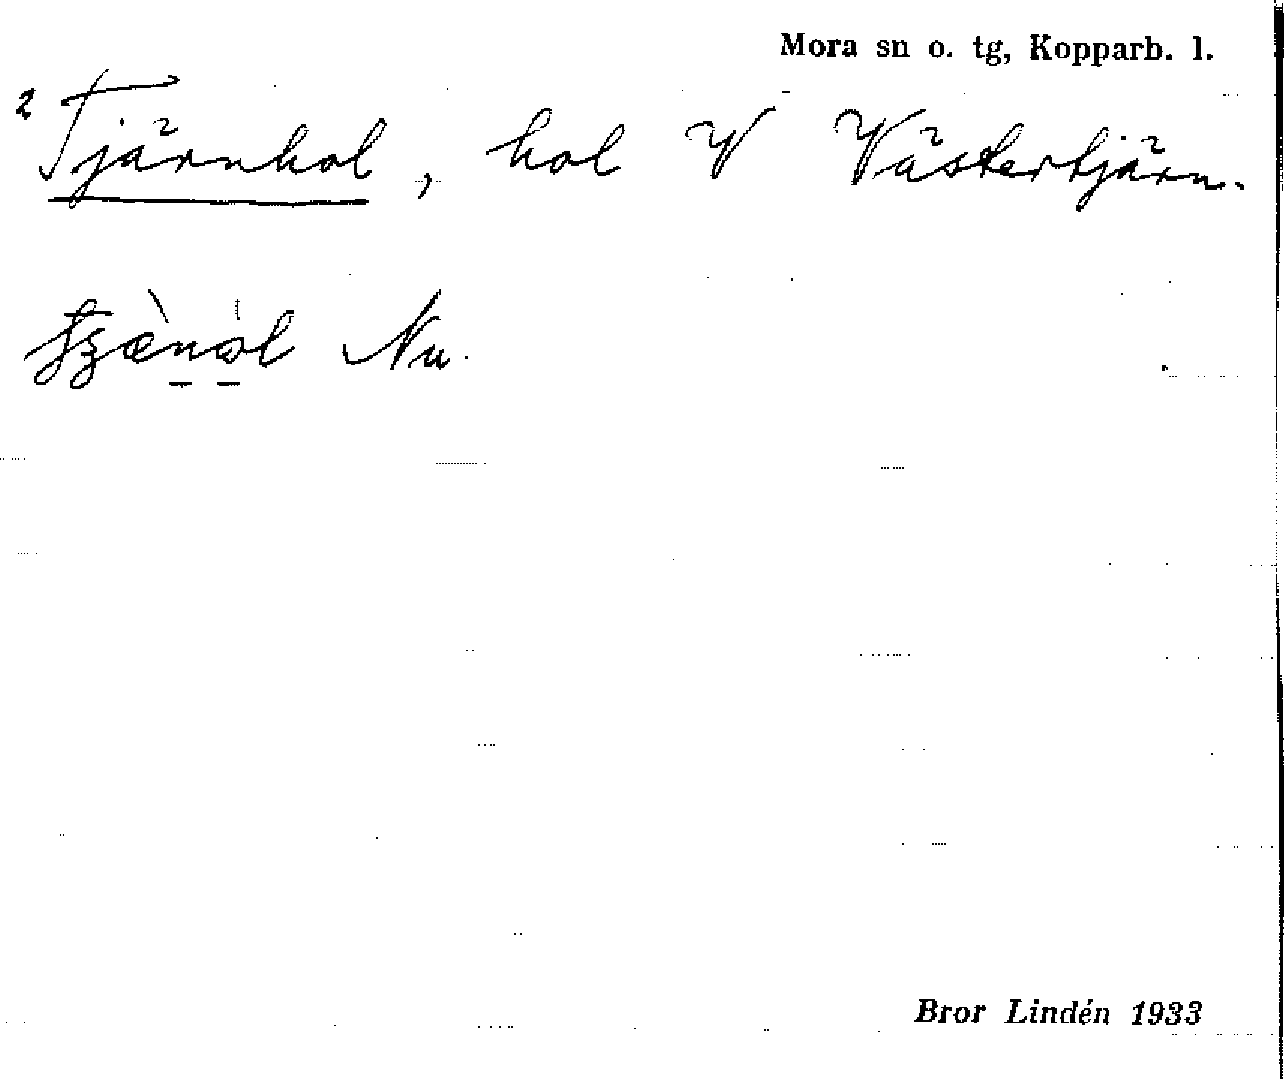 Mora sn o. tg, Kopparb. l.
2 Tjärnhol, hol V Västertjärn.
Nu.
Bror Lindén 1933